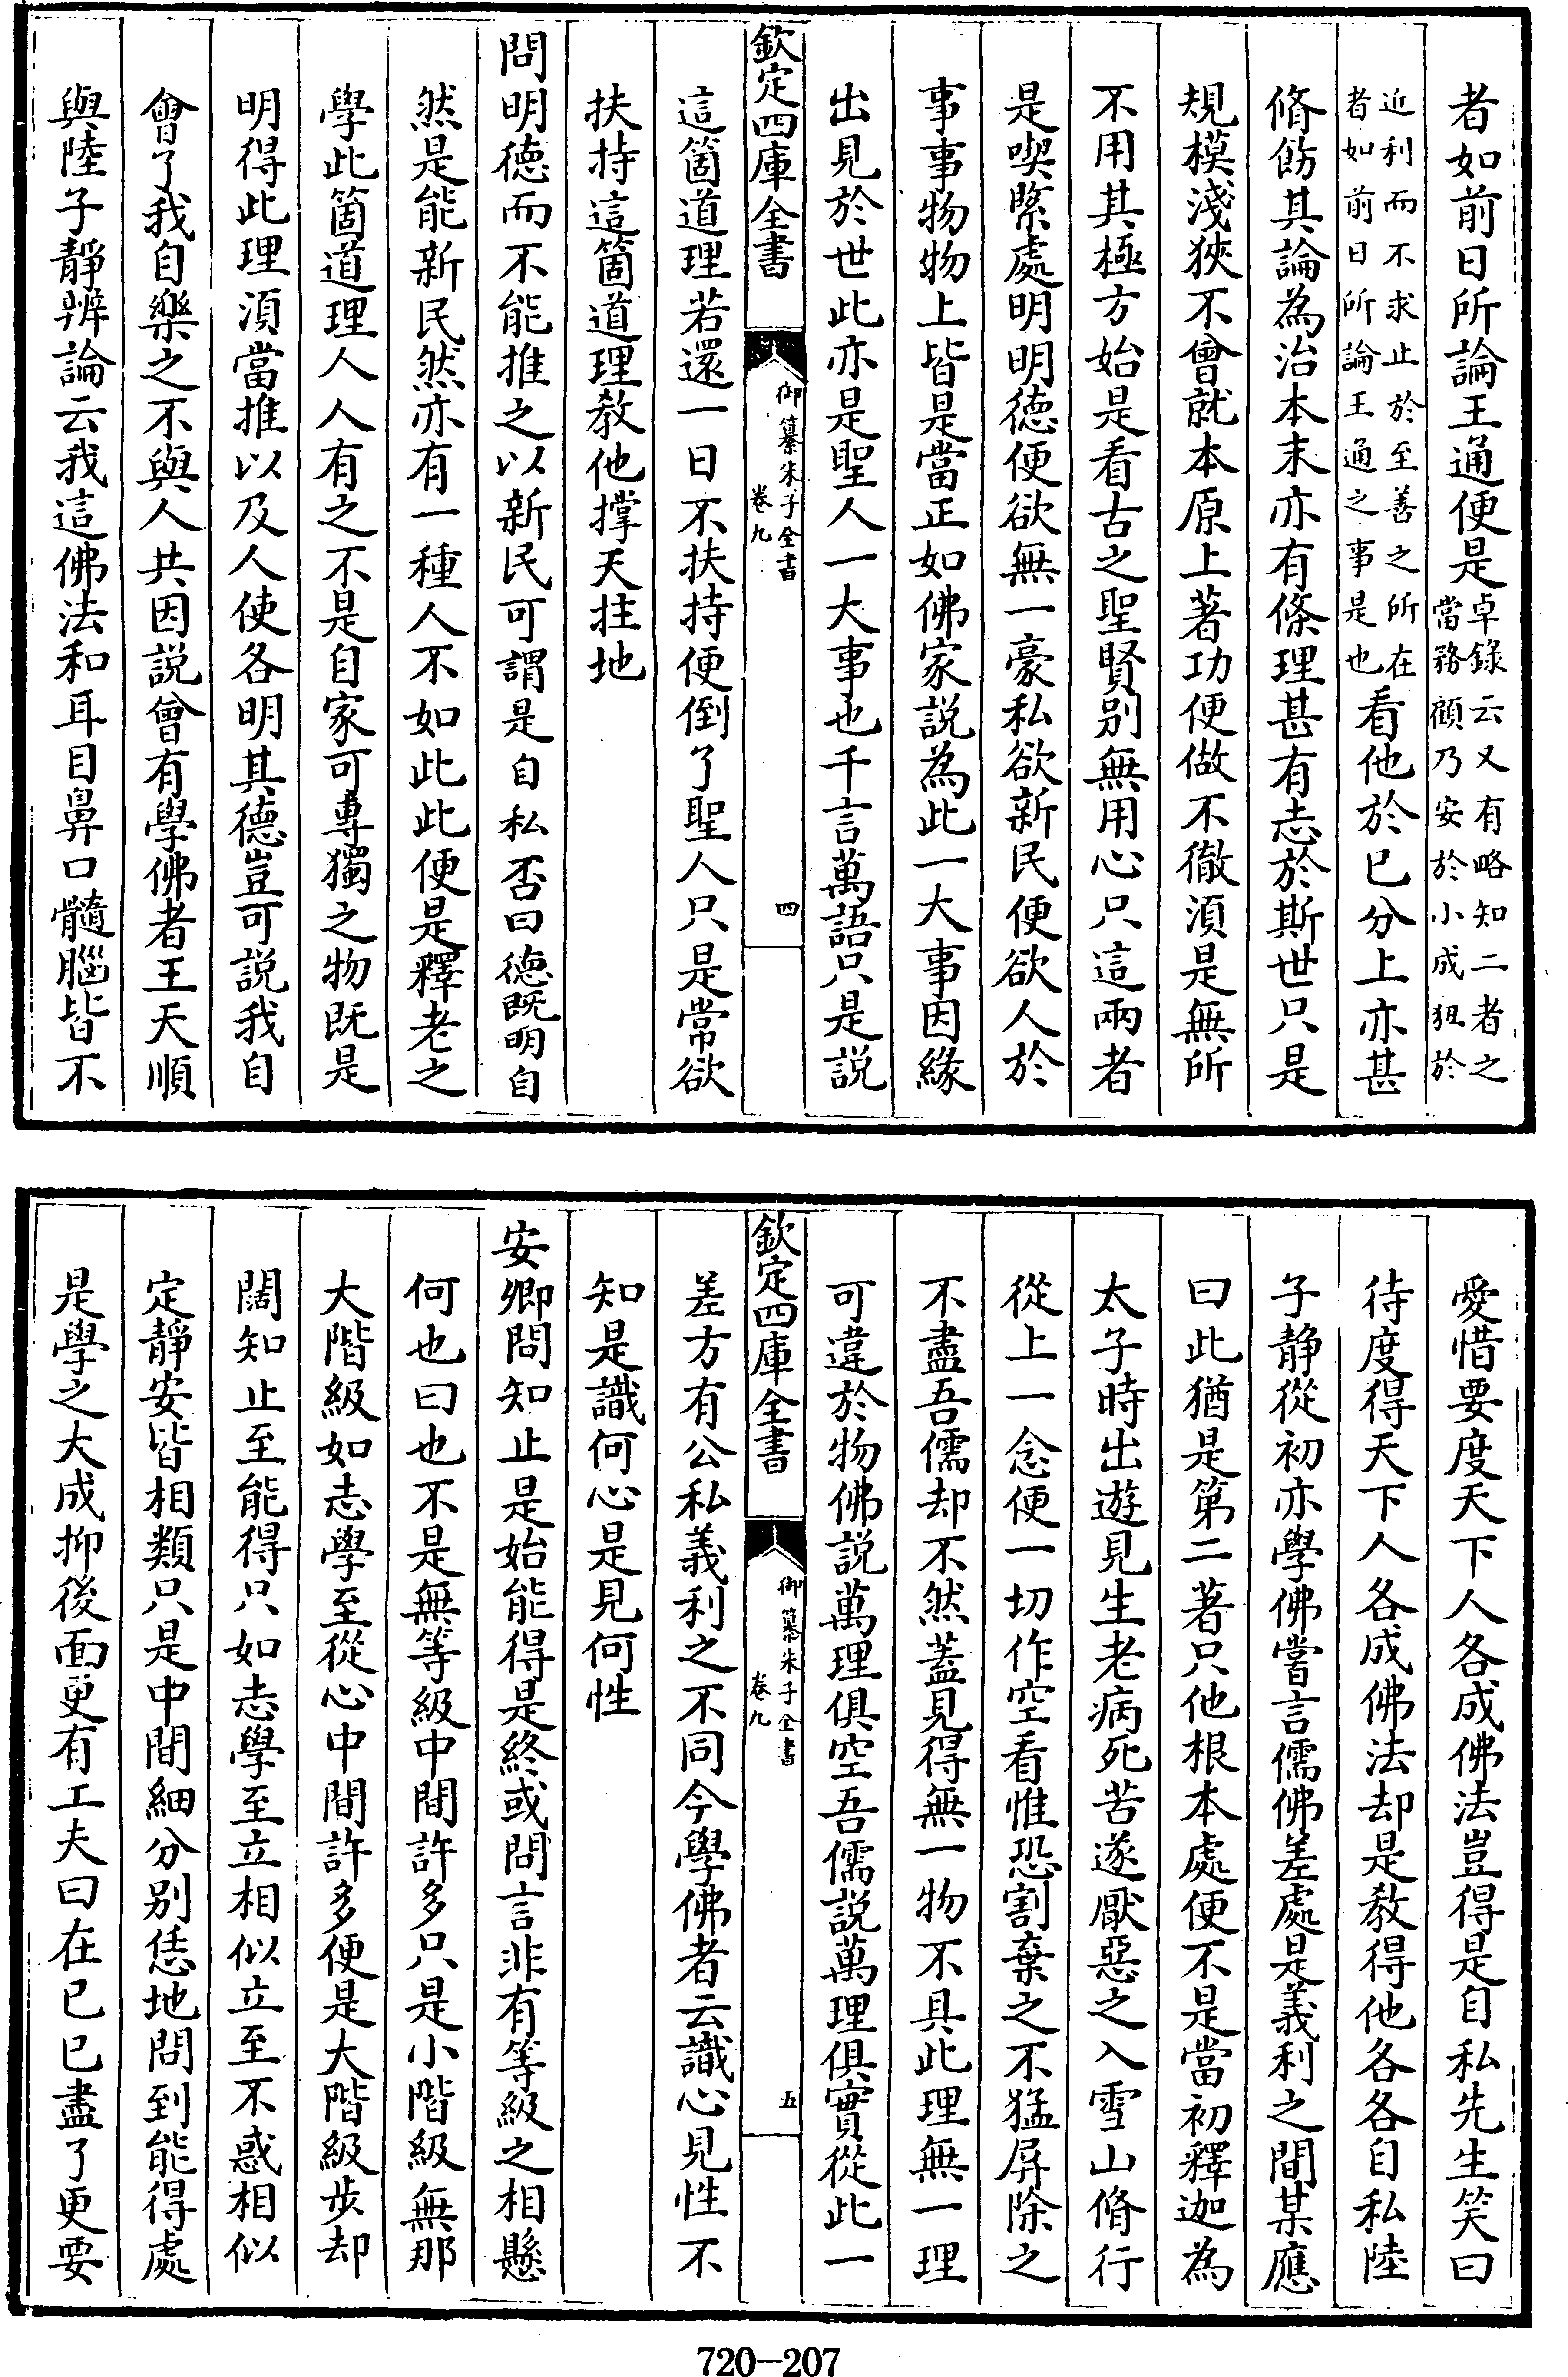 者如前日所論王通便是卓錄云又有略知二者之
當務顧乃安於小成狃於
近利而不求止於至善之所在
者如前日所論王通之事是也看他於已分上亦甚
脩飭其論為治本末亦有條理甚有志於斯世只是
規模淺狹不曾就本原上著功便做不徹湏是無所
不用其極方始是看古之聖賢别無用心只這兩者
是喫緊處明明德便欲無一豪私欲新民便欲人於
事事物物上皆是當正如佛家説為此一大事因緣
出見於世此亦是聖人一大事也千言萬語只是説
欽定四庫全書
御纂朱子全書
卷九
四
這箇道理若還一日不扶持便倒了聖人只是常欲
扶持這箇道理教他撑天拄地
問明德而不能推之以新民可謂是自私否曰德既明自
然是能新民然亦有一種人不如此此便是釋老之
學此箇道理人人有之不是自家可專獨之物既是
明得此理湏當推以及人使各明其德豈可説我自
會了我自樂之不與人共因説曾有學佛者王天順
與陸子靜辨論云我這佛法和耳目鼻口髓腦皆不
愛惜要度天下人各成佛法豈得是自私先生笑曰
待度得天下人各成佛法却是教得他各各自私陸
子靜從初亦學佛嘗言儒佛差處是義利之間某應
曰此猶是第二著只他根本處便不是當初釋迦為
太子時出遊見生老病死苦遂厭惡之入雪山脩行
從上一念便一切作空看惟恐割棄之不猛屏除之
不盡吾儒却不然蓋見得無一物不具此理無一理
可違於物佛説萬理俱空吾儒説萬理俱實從此一
欽定四庫全書
御纂朱子全書
卷九
五
差方有公私義利之不同今學佛者云識心見性不
知是識何心是見何性
安卿問知止是始能得是終或問言非有等級之相懸
何也曰也不是無等級中間許多只是小階級無那
大階級如志學至從心中間許多便是大階級步却
闊知止至能得只如志學至立相似立至不惑相似
定靜安皆相類只是中間細分别恁地問到能得處
是學之大成抑後面更有工夫曰在已已盡了更要
720-207